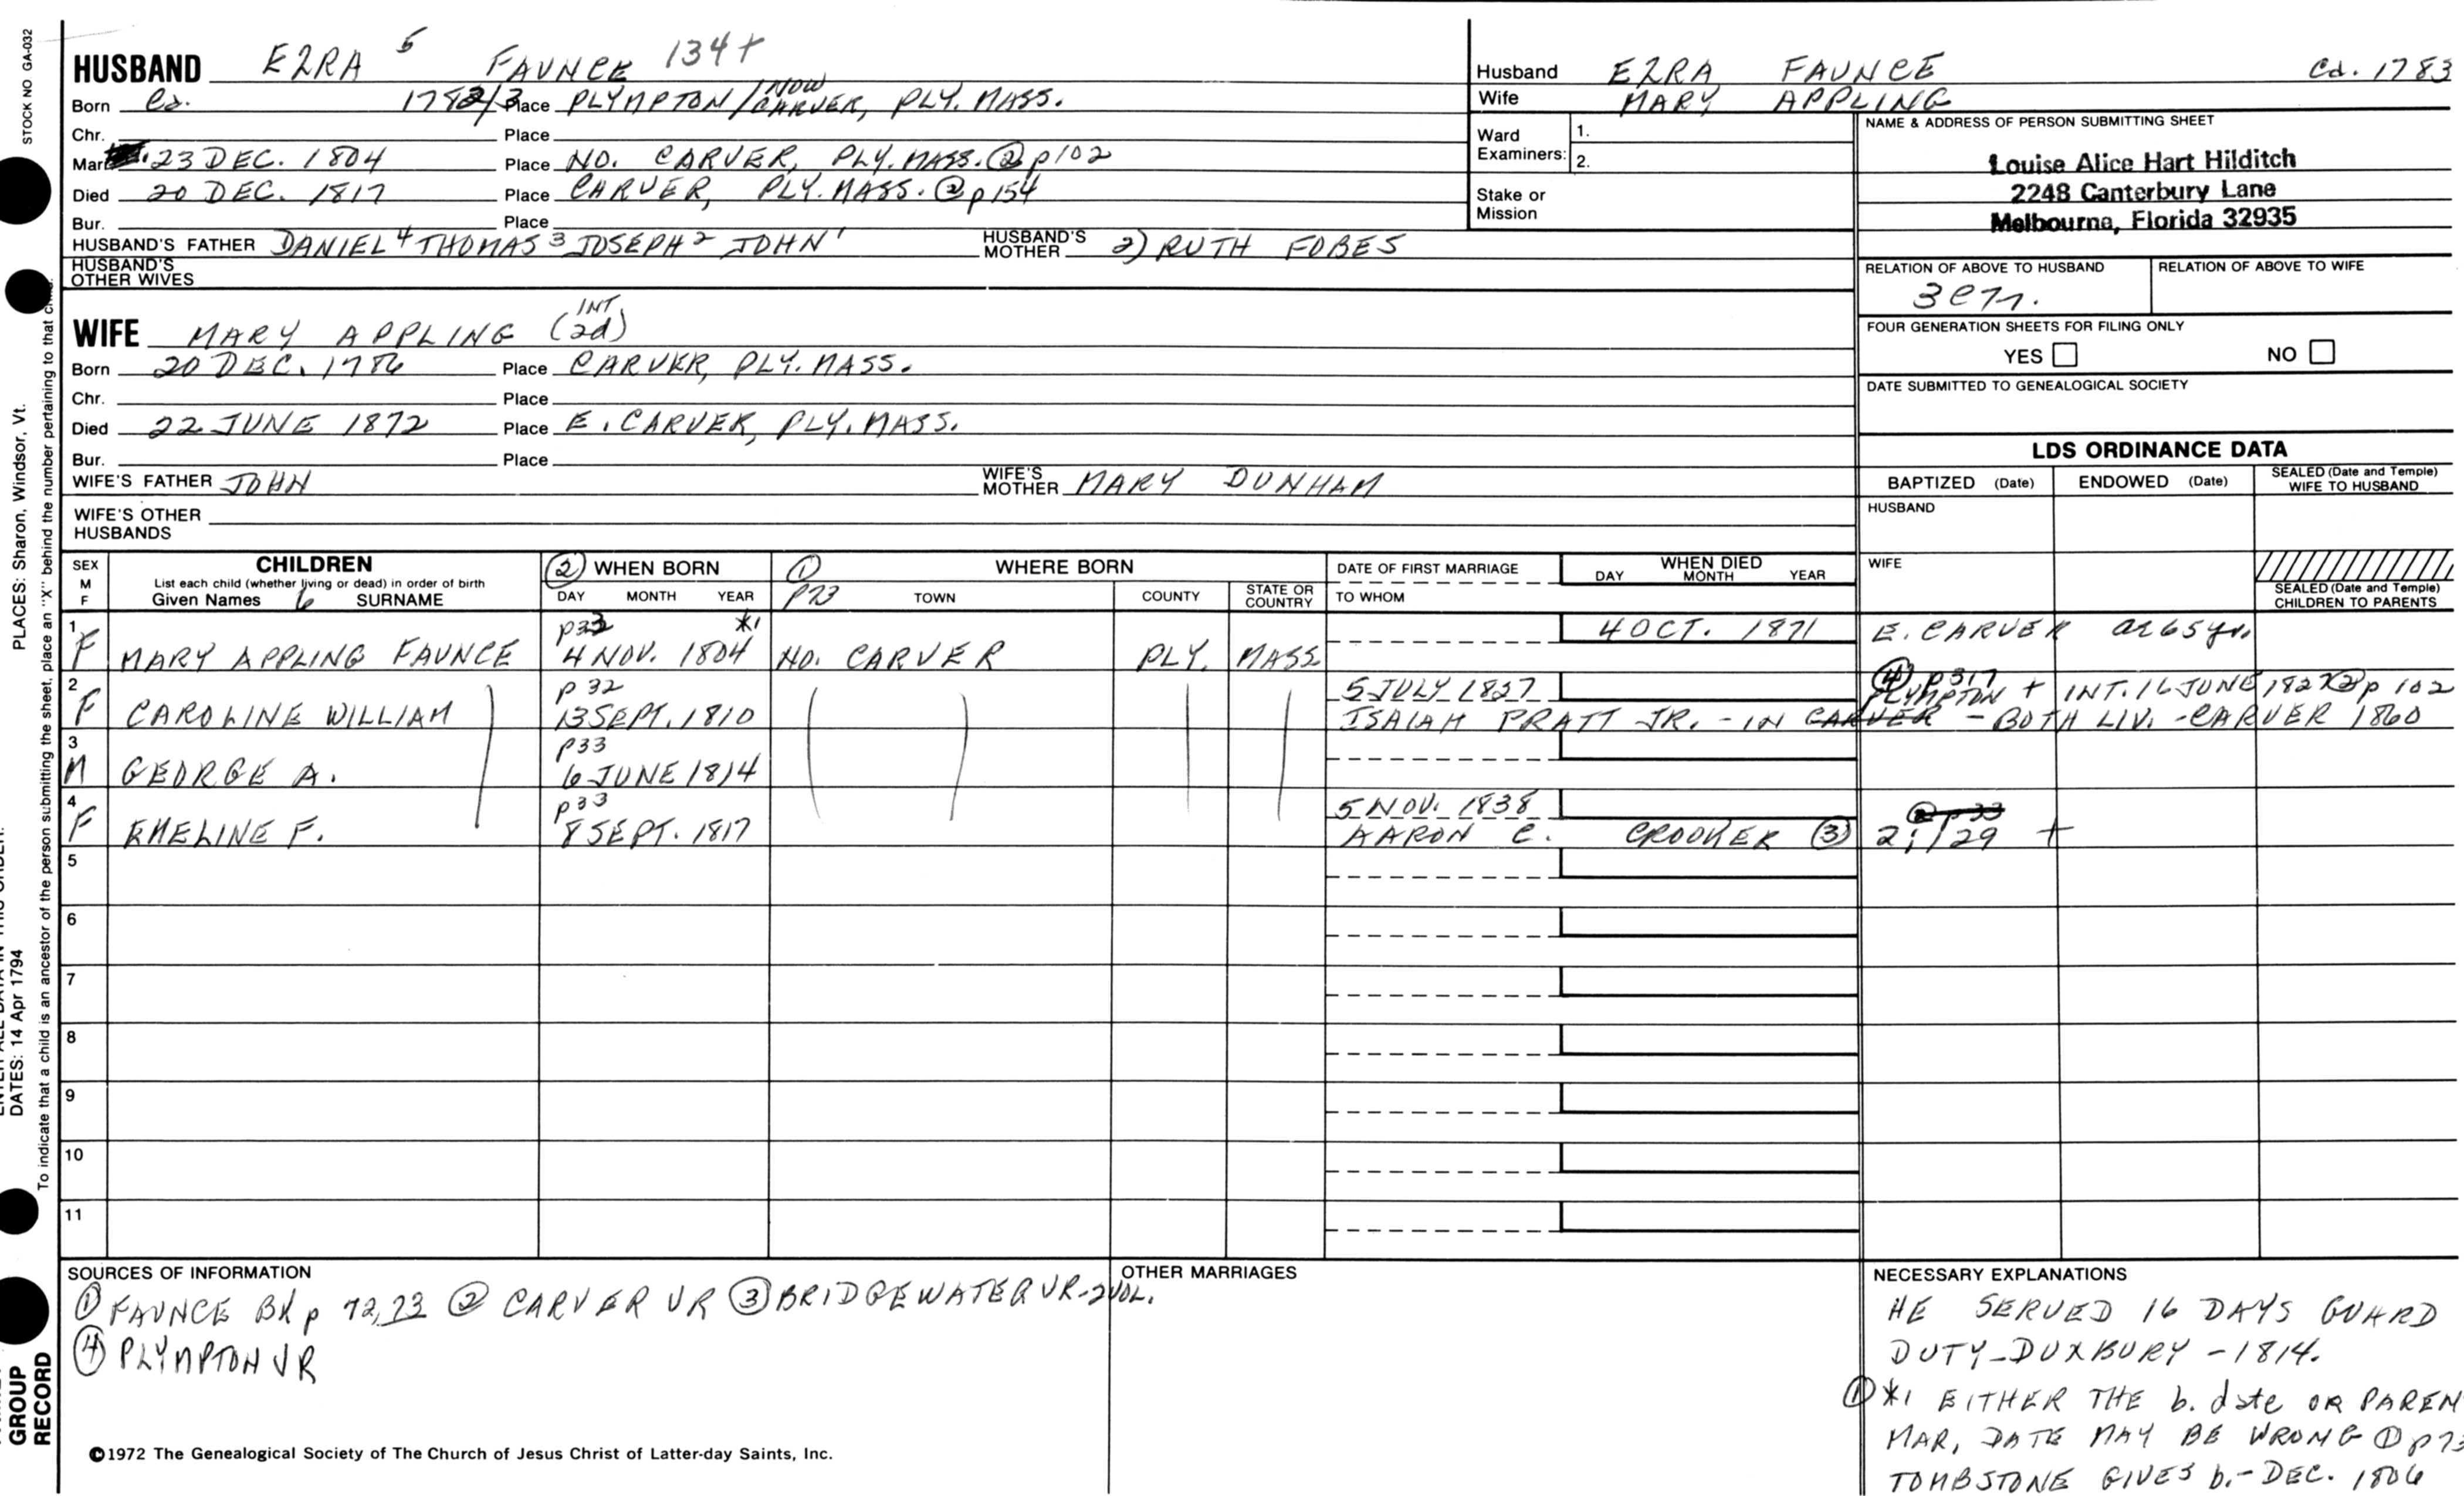 STOCK NO GA-032
PLACES: Sharon, Windsor, Vt.
DATES: 14 Apr 1794
To indicate that a child is an ancestor of the person submitting the sheet, place an "X" behind the number pertaining to that child.
GROUP
RECORD
HUSBAND EZRA 5 FAUNCE 134+
Born Ca. 1782/3 Place PLYMPTON/NOW CARVER, PLY. MASS.
Chr. Place
Marr. 23 DEC. 1804 Place NO. CARVER, PLY. MASS. ② p102
Died 20 DEC. 1817 Place CARVER, PLY. MASS. ② p154
Bur. Place
HUSBAND'S FATHER DANIEL 4 THOMAS 3 JOSEPH 2 JOHN 1 HUSBAND'S MOTHER 2) RUTH FOBES
HUSBAND'S OTHER WIVES
WIFE MARY APPLING (2d) INT
Born 20 DEC. 1786 Place CARVER, PLY. MASS.
Chr. Place
Died 22 JUNE 1872 Place E. CARVER, PLY. MASS.
Bur. Place
WIFE'S FATHER JOHN WIFE'S MOTHER MARY DUNHAM
WIFE'S OTHER HUSBANDS
Husband EZRA FAUNCE Ca. 1783
Wife MARY APPLING
Ward Examiners: 1.
2.
Stake or Mission
NAME & ADDRESS OF PERSON SUBMITTING SHEET
Louise Alice Hart Hilditch
2248 Canterbury Lane
Melbourne, Florida 32935
RELATION OF ABOVE TO HUSBAND RELATION OF ABOVE TO WIFE
FOUR GENERATION SHEETS FOR FILING ONLY
YES NO
DATE SUBMITTED TO GENEALOGICAL SOCIETY
LDS ORDINANCE DATA
BAPTIZED (Date) ENDOWED (Date) SEALED (Date and Temple) WIFE TO HUSBAND
HUSBAND
WIFE
SEALED (Date and Temple) CHILDREN TO PARENTS
SEX M F CHILDREN ② WHEN BORN ① WHERE BORN DATE OF FIRST MARRIAGE WHEN DIED
List each child (whether living or dead) in order of birth
Given Names 6 SURNAME DAY MONTH YEAR p73 TOWN COUNTY STATE OR COUNTRY TO WHOM DAY MONTH YEAR
1 p33 *1 4 OCT. 1871 E. CARVER ae 65 yr.
F MARY APPLING FAUNCE 4 NOV. 1804 NO. CARVER PLY. MASS
2 p32 5 JULY 1827 ④ p317 PLYMPTON + INT. 16 JUNE 1827 ② p 102
F CAROLINE WILLIAM 13 SEPT. 1810 ISAIAH PRATT JR. - IN CARVER - BOTH LIV. - CARVER 1860
3 p33
M GEORGE A. 6 JUNE 1814
4 p33 5 NOV. 1838 ② p33
F EMELINE F. 8 SEPT. 1817 AARON C. CROOKER ③ 2:129 +
5
6
7
8
9
10
11
SOURCES OF INFORMATION
① FAUNCE BK p 72,73 ② CARVER VR ③ BRIDGEWATER VR-2 VOL.
④ PLYMPTON VR
OTHER MARRIAGES
NECESSARY EXPLANATIONS
HE SERVED 16 DAYS GUARD
DUTY-DUXBURY - 1814.
① *1 EITHER THE b. date OR PAREN
MAR, DATE MAY BE WRONG ① p73
TOMBSTONE GIVES b.- DEC. 1806
©1972 The Genealogical Society of The Church of Jesus Christ of Latter-day Saints, Inc.